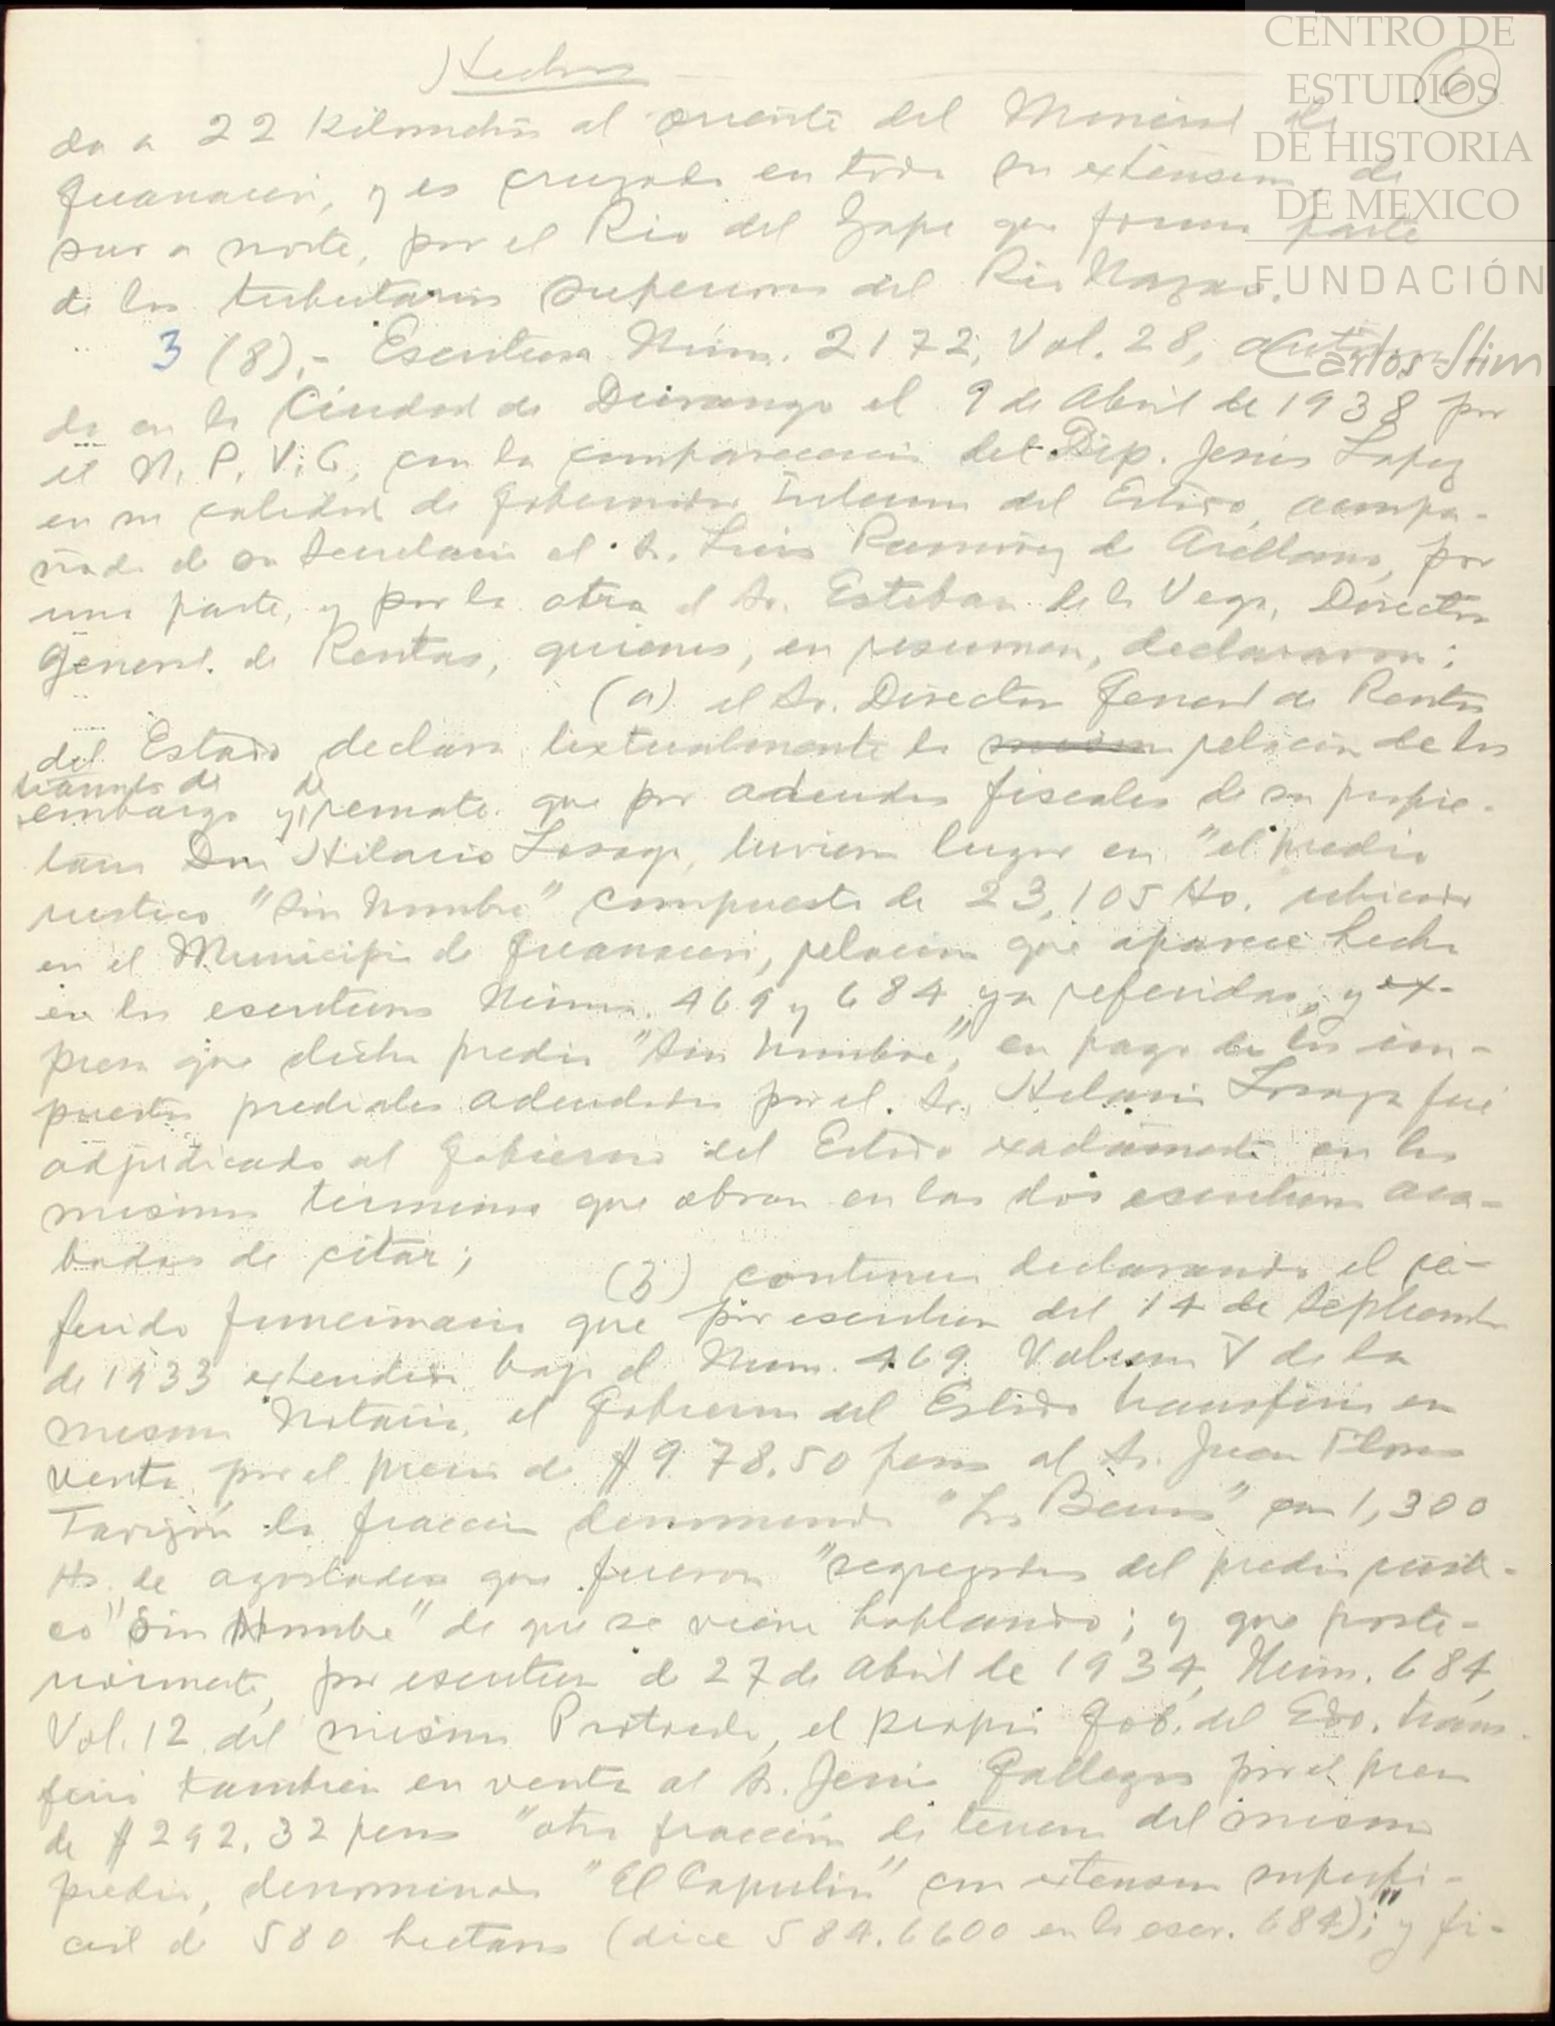 Hechos
6
CENTRO DE
ESTUDIOS
DE HISTORIA
DE MEXICO
FUNDACIÓN
Carlos Slim
do a 22 Kilometros al oriente del Mineral de
Guanaceví, y es cruzado en toda su extension, de
sur a norte, por el Rio del Zape que forma parte
de los tributarios superiores del Rio Nazas.
3 (8).- Escritura Núm. 2172, Vol. 28,
da en la Ciudad de Durango el 9 de Abril de 1938 por
el N. P. V. G, con la comparecencia del Dip. Jesús Lopez
en su calidad de Gobernador Interino del Estado, acompa-
ñado de su Secretario el Sr. Luis Ramirez de Arellano, por
una parte, y por la otra el Sr. Esteban de la Vega, Director
General de Rentas, quienes, en resumen, declararon:
(a) el Sr. Director General de Rentas
del Estado declara textualmente la relacion de los
tramites de de
embargo y remate que por adeudos fiscales de su propie-
tario Don Hilario Lozoya, tuvieron lugar en "el predio
rustico "Sin Nombre" compuesto de 23,105 Hs. ubicado
en el Municipio de Guanacevi, relacion que aparece hecha
en las escrituras Núms. 469 y 684 ya referidas; y ex-
presa que dicho predio "Sin Nombre", en pago de los im-
puestos prediales adeudados por el Sr. Hilario Lozoya fué
adjudicado al Gobierno del Estado exactamente en los
mismos términos que obran en las dos escrituras aca-
badas de citar;
(b) continua declarando el re-
ferido funcionario que por escritura del 14 de Septiembre
de 1933 extendida bajo el Num. 469 Volumen V de la
misma Notaria, el Gobierno del Estado transfirió en
venta por el precio de $978.50 pesos al Sr. Juan Flores
Tarizón la fraccion denominada con 1,300
Hs. de agostadero que fueron "segregados del predio rústi-
co "Sin Nombre" de que se viene hablando; y que poste-
riormente, por escritura de 27 de Abril de 1934, Núm. 684,
Vol. 12 del mismo Protocolo, el propio Gob. del Edo. trans-
firió tambien en venta al Sr. Jesús Gallegos por el precio
de $292.32 pesos "otra fracción de terreno del mismo
predio, denominada "El Capulin" con extension superfi-
cial de 580 hectaras (dice 584.6600 en la escr. 684);" y fi-